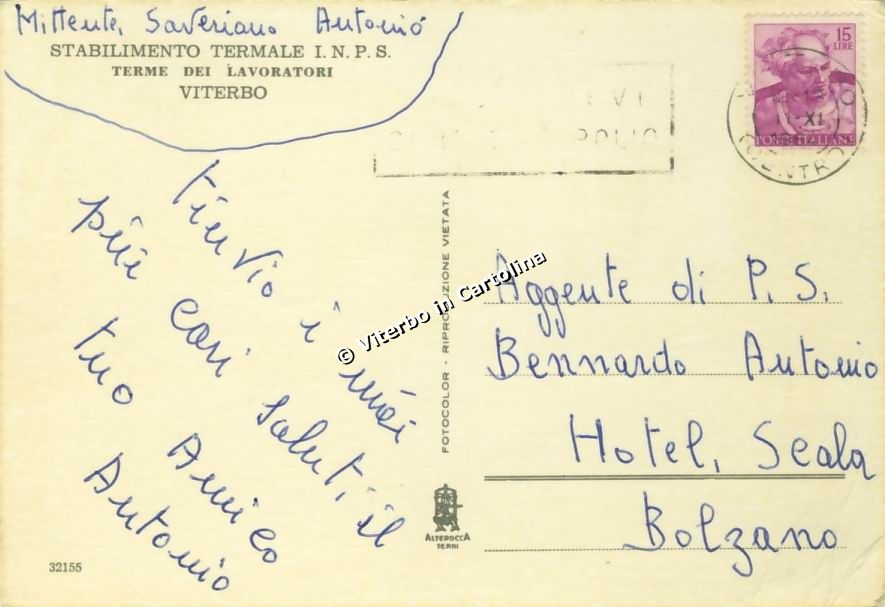 Mittente, Saveriano Antonio
STABILIMENTO TERMALE I.N.P.S.
TERME DEI LAVORATORI
VITERBO
15
LIRE
POSTE ITALIANE
XI
CENTRO
POLIO
tinvio i miei
più cari saluti, il
tuo Amico
Antonio
FOTOCOLOR - RIPRODUZIONE VIETATA
© Viterbo in Cartolina
Aggente di P. S.
Bennardo Antonio
Hotel, Scala
Bolzano
ALTEROCCA
TERNI
32155